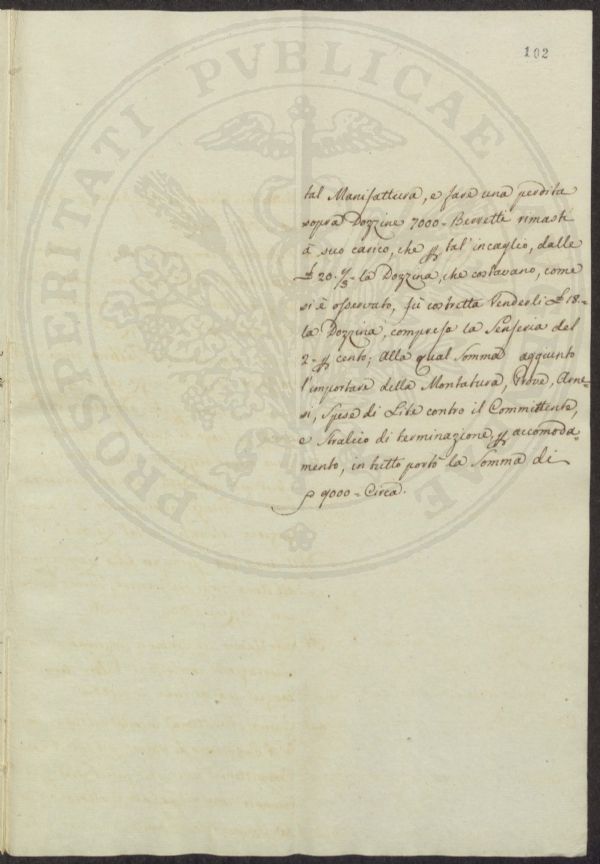 102
PROSPERITATI PVBLICAE AVGENDAE
tal Manifattura, e fare una perdita
sopra Dozzine 7000 = Berretti rimasti
à suo carico, che ꝑ tal' incaglio, dalle
£ 20.⅓ = la Dozzina, che costavano, come
si è osservato, fù costretta Venderli £ 18. =
la Dozzina, compresa la Senseria del
2 = ꝑ cento; Alla qual Somma aggiunto
l'importare della Montatura, Prove, Arne=
si, Spese di Lite contro il Committente,
e Stralcio di terminazione ꝑ accomoda=
mento, in tutto portò la Somma di
9000 = Circa.